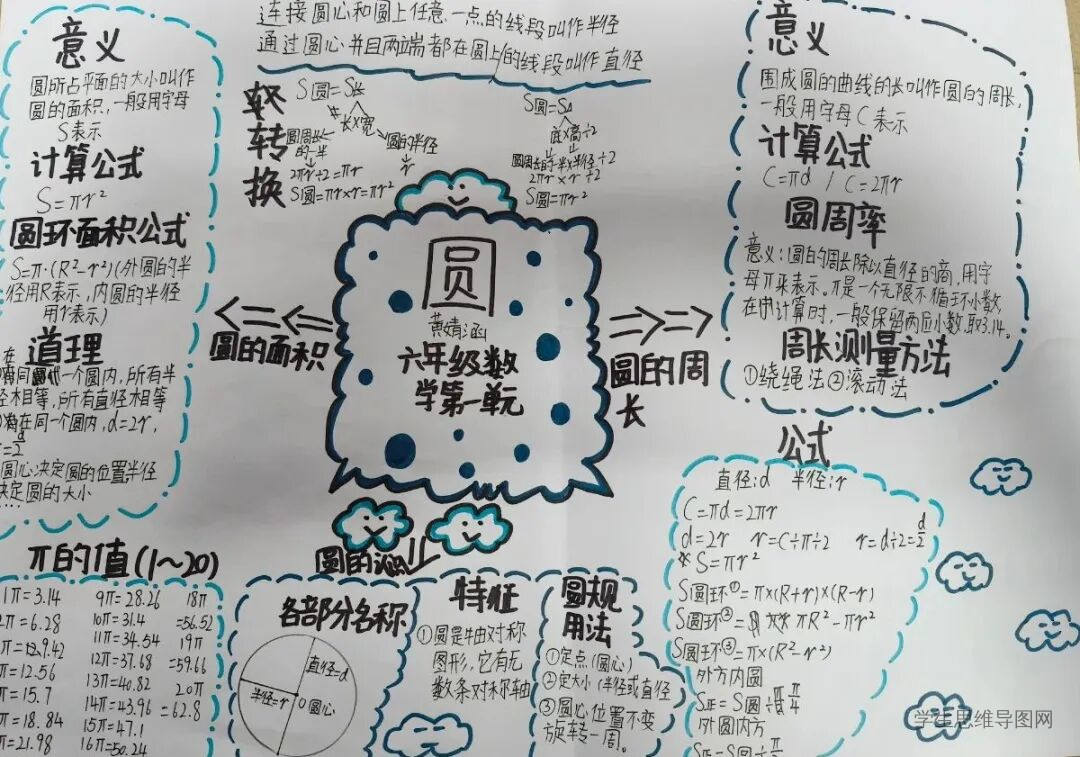 连接圆心和圆上任意一点的线段叫作半径
通过圆心并且两端都在圆上的线段叫作直径
意义
圆所占平面的大小叫作
圆的面积，一般用字母
S表示
计算公式
S=πr²
圆环面积公式
S=π·(R²-r²)(外圆的半
径用R表示，内圆的半径
用r表示)
道理
在
同一个圆内，所有半
径相等，所有直径相等
在同一个圆内，d=2r，
=d/2
圆心决定圆的位置半径
决定圆的大小
……
转换
S圆=S长
长×宽
圆周长的一半
圆的半径
2πr÷2=πr
r
S圆=πr×r=πr²
S圆=S△
底×高÷2
圆周长的一半×半径÷2
2πr×r÷2
S圆=πr²
圆
黄婧涵
六年级数
学第一单元
圆的面积
圆的周
长
意义
围成圆的曲线的长叫作圆的周长，
一般用字母C表示
计算公式
C=πd / C=2πr
圆周率
意义：圆的周长除以直径的商，用字
母π来表示。π是一个无限不循环小数，
在计算时，一般保留两位小数，取3.14。
周长测量方法
①绕绳法②滚动法
公式
直径:d 半径:r
C=πd=2πr
d=2r r=C÷π÷2 r=d÷2=d/2
*S=πr²
S圆环①=π×(R+r)×(R-r)
S圆环②=πR²-πr²
S圆环③=π×(R²-r²)
外方内圆
S正=S圆÷π/4
外圆内方
S正=S圆÷π/2
π的值(1~20)
1π=3.14 9π=28.26 18π
2π=6.28 10π=31.4 =56.52
π=9.42 11π=34.54 19π
π=12.56 12π=37.68 =59.66
π=15.7 13π=40.82 20π
π=18.84 14π=43.96 =62.8
π=21.98 15π=47.1
16π=50.24
圆的认识
各部分名称
直径=d
半径=r
O圆心
特征
①圆是轴对称
图形，它有无
数条对称轴
圆规
用法
①定点(圆心)
②定大小(半径或直径
③圆心位置不变
旋转一周。
学生思维导图网